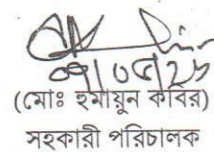 ০৭/০৫/২৮
(মোঃ হুমায়ুন কবির)
সহকারী পরিচালক